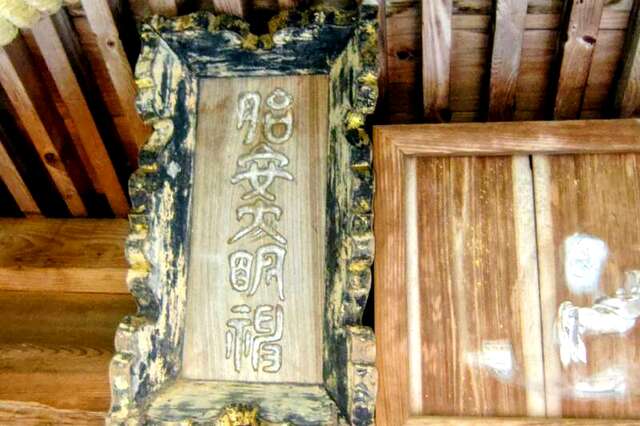 胎安大明神